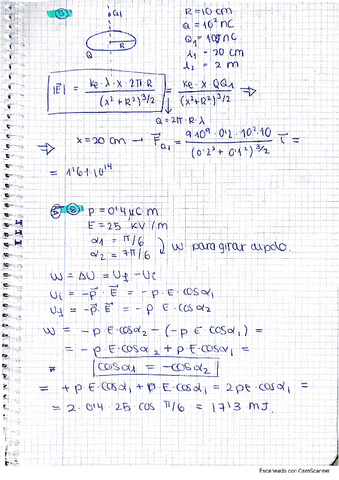 5
Q₁ R = 10 cm
Q = 10² nC
R Q₁ = 10⁸ nC
Q λ₁ = 20 cm
λ₂ = 2 m
|E| = ke·λ·x·2π·R / (x²+R²)^3/2 = ke·x·QQ₁ / (x²+R²)^3/2 ⇒
Q = 2π·R·λ
⇒ x = 20 cm → F_Q₁ = 9·10⁹·0'2·10²·10 / (0'2²+0'1²)^3/2 i =
= 1'61·10¹⁴
8 P = 0'4 μC m
E = 25 kV/m
α₁ = π/6
α₂ = 7π/6 W para girar dipolo.
W = ΔU = Uf - Ui
Ui = -p·E = -p·E·cosα₁
Uf = -p·E = -p·E·cosα₂
W = -p·E·cosα₂ - (-p·E·cosα₁) =
= -p·E·cosα₂ + p·E·cosα₁ =
= cosα₁ = -cosα₂
= +p·E·cosα₁ + p·E·cosα₁ = 2pE·cosα₁ =
= 2·0'4·25 cos π/6 = 17'3 mJ.
Escaneado con CamScanner